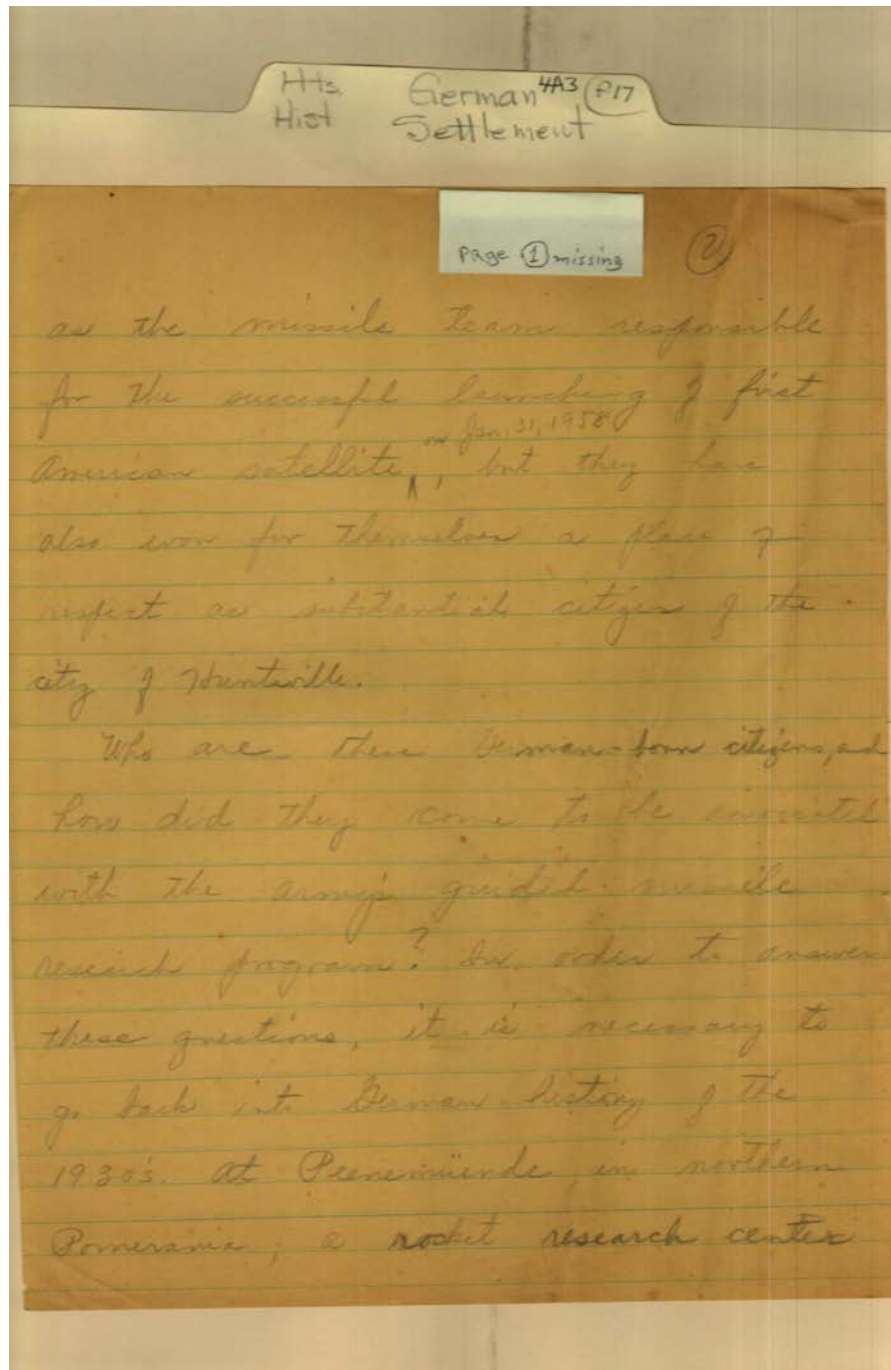 Hts. German 4A3 P17
Hist Settlement
page 1 missing
2
as the missile team responsible
for the successful launching of first
on Jan. 31, 1958
American satellite, but they have
also won for themselves a place of
respect as substantial citizen of the
city of Huntsville.
Who are these German-born citizens, and
how did they come to be associated
with the army's guided missile
research program? In order to answer
these questions, it is necessary to
go back into German history of the
1930's. At Peenemünde, in northern
Pomerania, a rocket research center